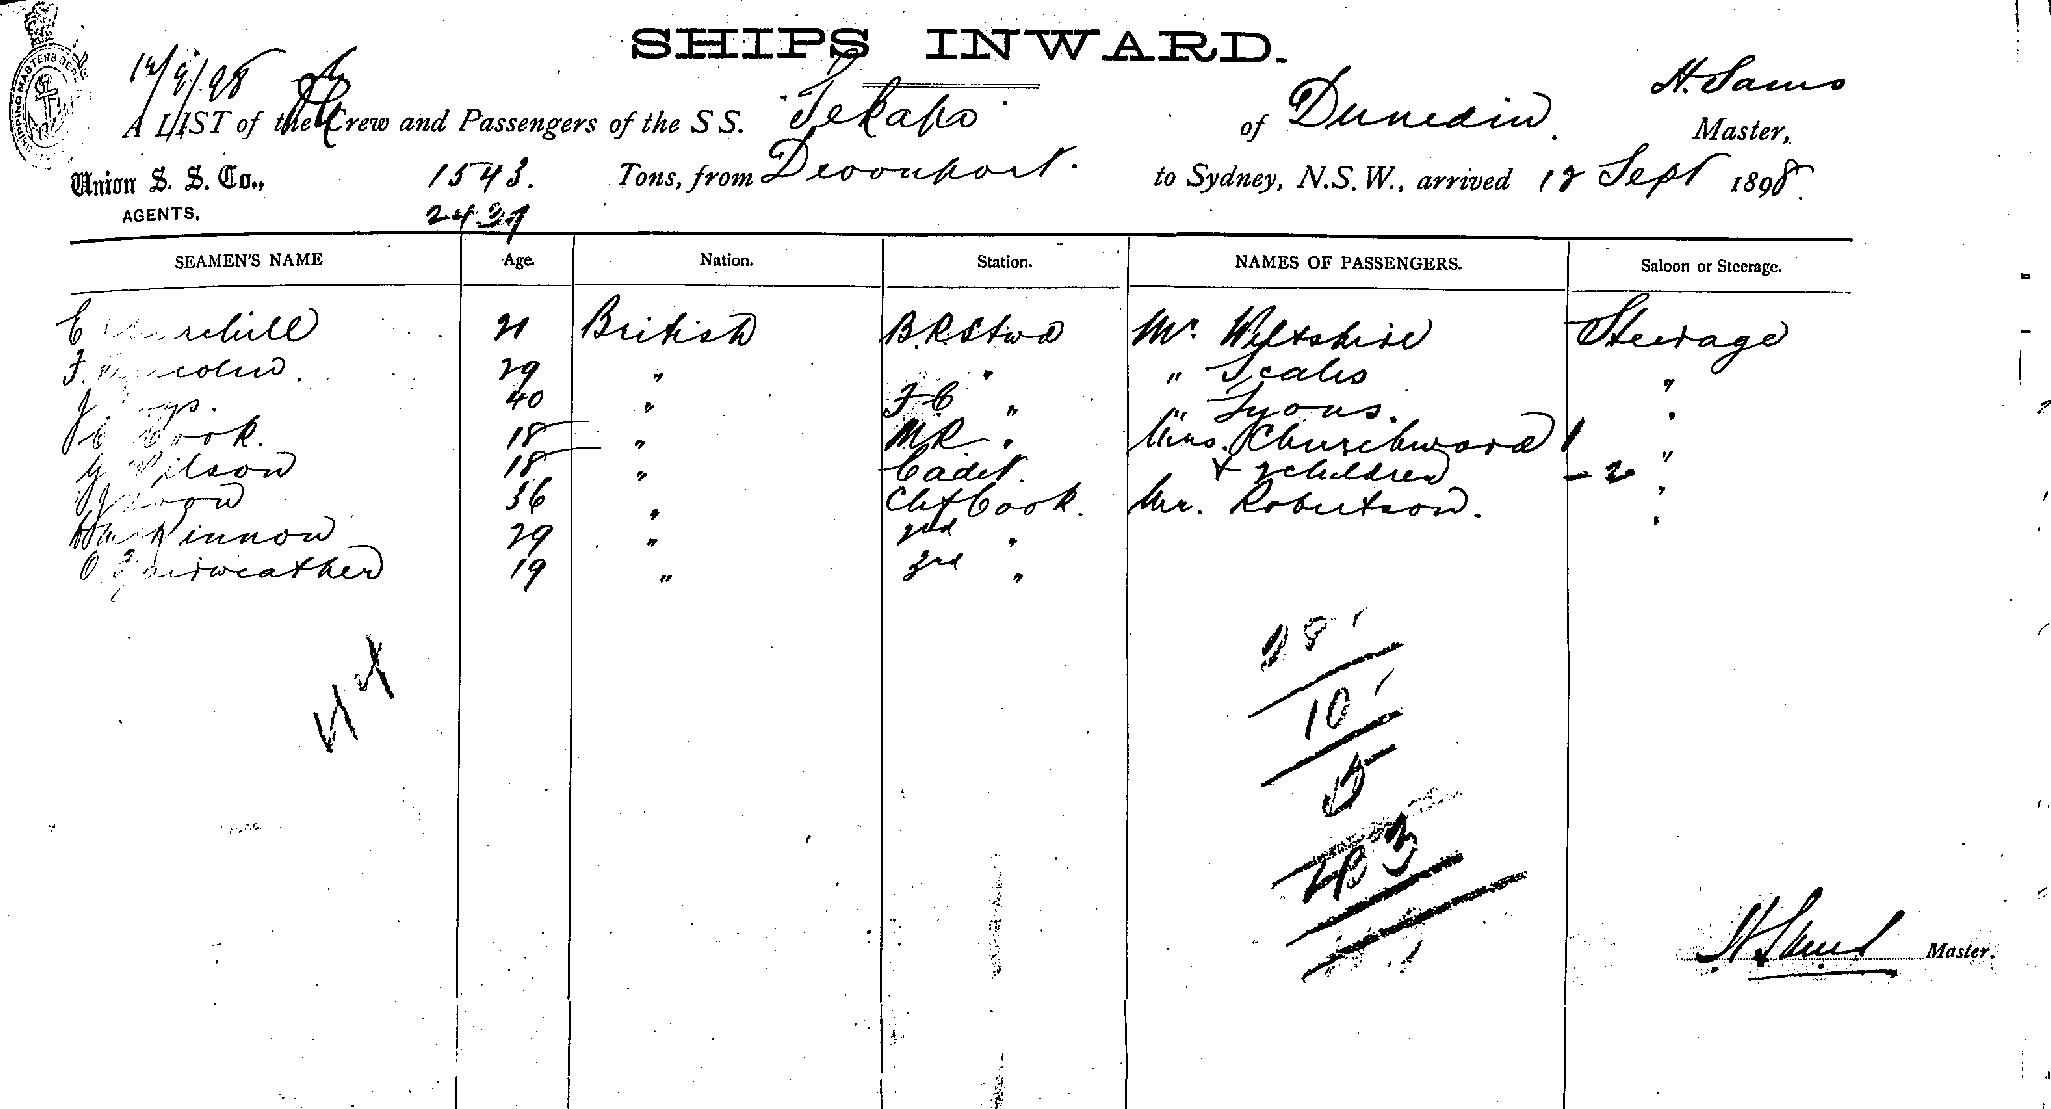 SHIPS INWARD.
12/9/98
H. Sams
A LIST of the Crew and Passengers of the S S. Tekapo of Dunedin. Master,
Union S. S. Co., 1543. Tons, from Devonport. to Sydney, N.S.W., arrived 12 Sept 1898.
AGENTS. 2439
SEAMEN'S NAME Age. Nation. Station. NAMES OF PASSENGERS. Saloon or Steerage.
21 British B.R Stwd Mr. Wiltshire Steerage
F. 29 " " " Scales "
J 40 " F C " " Lyons. "
J C Cook. 18 " M R " Mrs. Churchward 1 "
G Wilson 18 " Cadet. + 2 children - 2 "
36 " Chf Cook. Mr. Robertson. "
Kinnon 29 " 2nd "
O Fairweather 19 " 3rd "
44
38
10
5
H Sams Master.